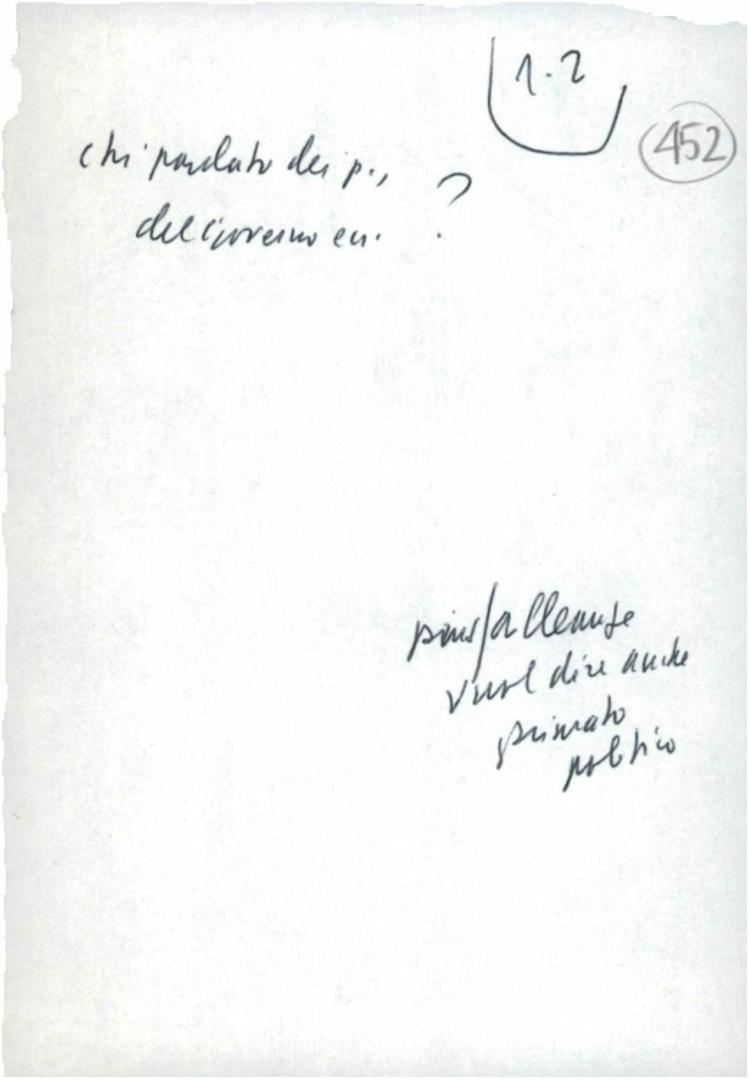 1.2
452
chi parlato dei p.,
del Governo ?
alleanze
vuol dire anche
primato
politico